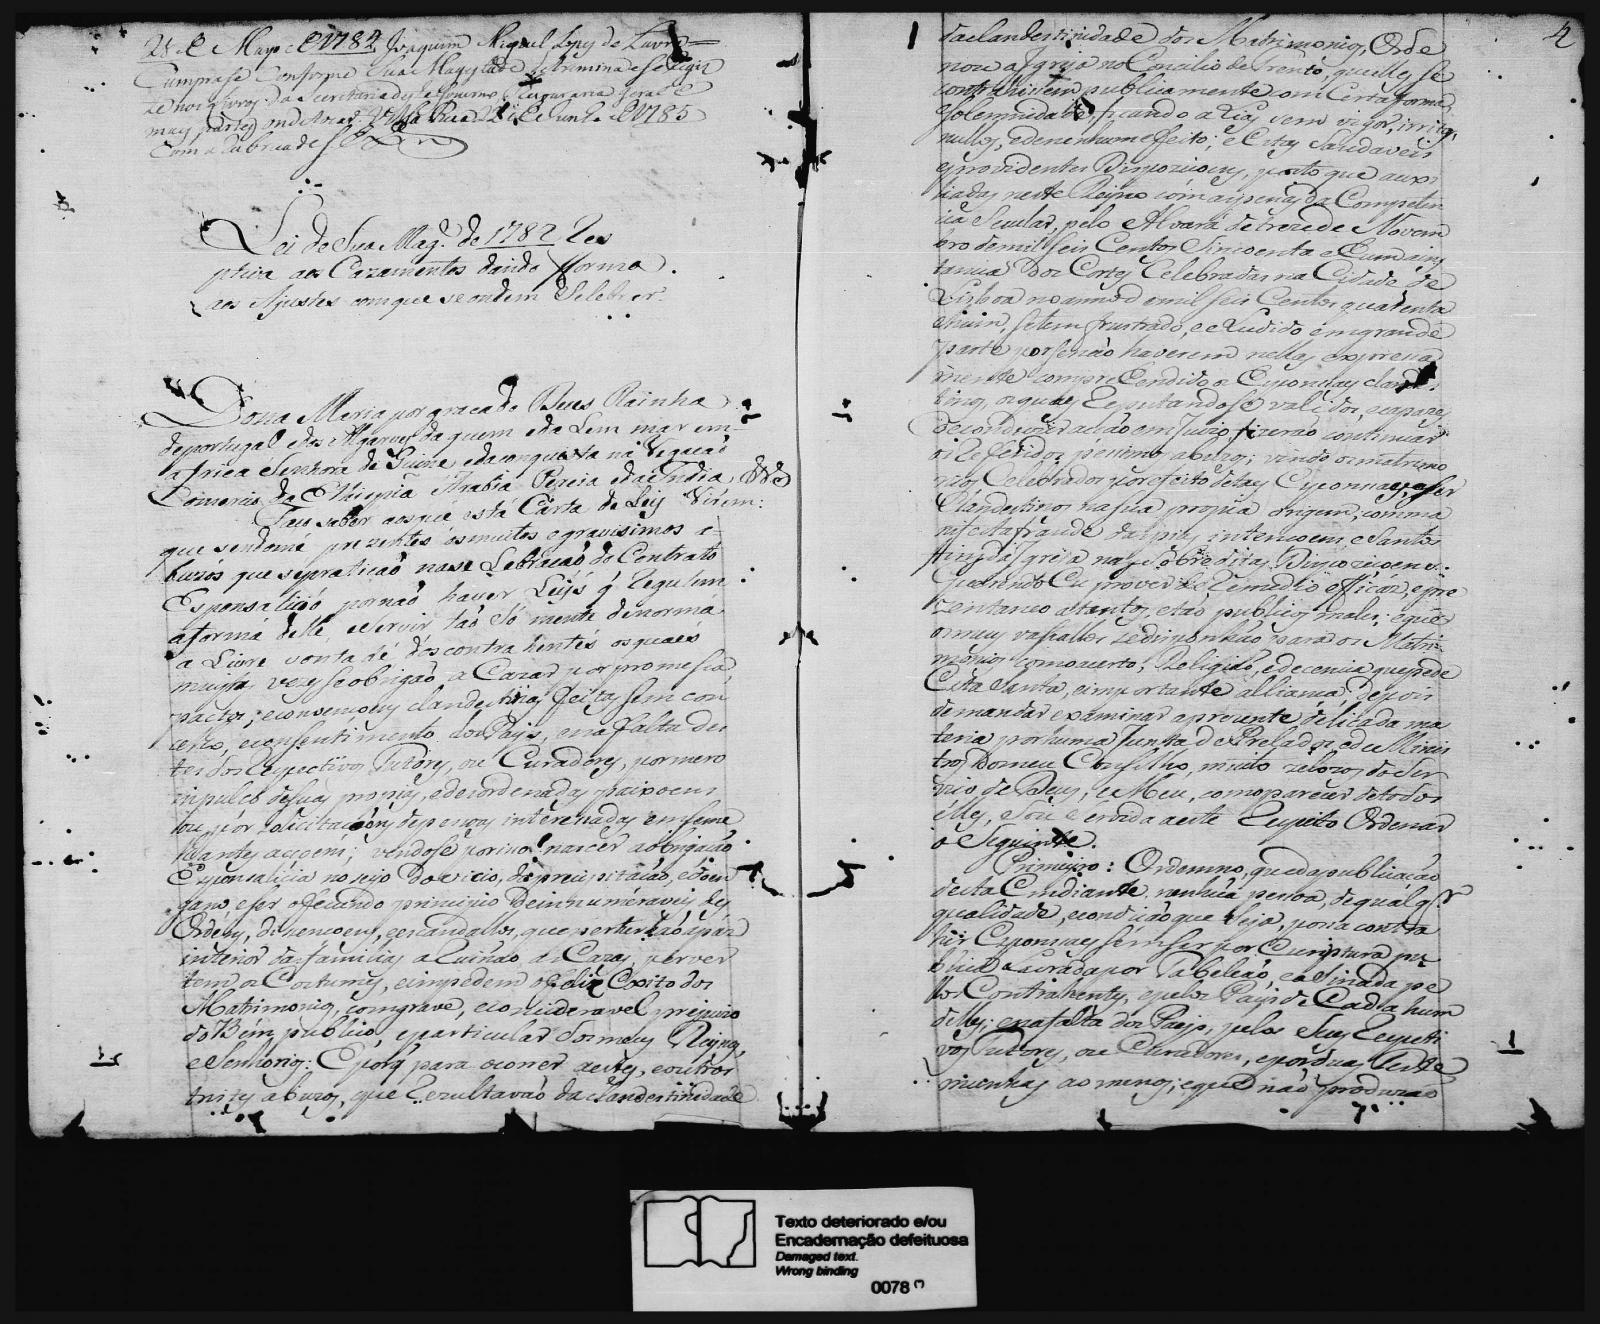 28 de Mayo de 1784 Joaquim Miguel Lopes de Lavre
Cumprase Conforme Sua Magestade detremina e se Regis
te nos Livros da Secretaria deste Governo
mais partes onde tocar Villa Rica 21 de Junho de 1785
Com a Rubrica de S. Ex.
Lei de Sua Mag. de 1782 Res
ptiva aos Cazamentos dando forma
aos Ajustes com que se podem Selebrar.
Dona Maria por graça de Deus Rainha
de portugal e dos Algarves da quem e da Lem mar em
africa Senhora de Guine e da conquista navegacaõ
Comercio da Ethiopia Arabia Percia e da India &&
Faço saber aos que esta Carta de Ley Virem:
que sendome prezentes os muitos e gravisimos a
buzos que se praticaõ na se Lebracaõ do Contrato
Esponsalicio por naõ haver Leys q Regulem
a forma delle, e servir taõ Só mente de norma
a Livre vontade dos contrahentes os quaes
muitas vezes se obrigaõ a Cazar por promessas,
pactos, e convencoens clandestinas feitas sem con
celho, e consentimento dos Pays, e na falta des
tes dos respectivos Tutores, ou Curadores, por mero
impulço de suas proprias, e dezordenadas paixoens
ou por Solicitacõens de pessoas interessadas em seme
lhantes accoens; vendose por isso nascer a obrigacaõ
Esponsalicia no seyo do vicio, da precipitacaõ, e do en
gano e ser o fecundo principio de innumeraveis des
Ordens, dissencoens, e escandallos, que perturbaõ a paz
interior das familias a Ruinaõ as Cazas, perver
tem os Costumes, e impedem o feliz Exito dos
Matrimonios, com grave, e consideravel prejuizo
do Bem publico, e particular dos meus Reynos,
e Senhorios: E porq para ocorrer a estes, e outros
tristes abuzos, que Rezultavaõ da clandestinidade
2
da clandestinidade dos Matrimonios, Orde
nou a Igreja no Concilio de Trento, que elles se
contrahissem publicamente com Certa forma,
Solemnidade, ficando a Liás sem vigor, irritos,
nullos, e de nenhum efeito; e Estas Saudaveis
e providentes Dispozicoens, posto que auxi
liadas neste Reyno com as penas da Competen
cia Secular, pelo Alvará de treze de Novem
bro de mil Seis Centos Sincoenta e Hum a ins
tancia das Cortes Celebradas na Cidade de
Lisboa no anno de mil seis Centos quarenta
e hum, se tem frustrado, e eLudido em grande
parte por se naõ haverem nellas expressa
mente comprehendido os Esponsaes clandes
tinos, os quaes Reputandose validos, e capazes
de acaõ em Juizo fizeraõ continuar
os Referidos pessimos abuzos; vindo os matrimo
nios Celebrados por efeito destas Esponsaes, a ser
Clandestinos na sua propria origem, com ma
nifesta fraude das pias intencoens, e Santos
fins da Igreja nas sobreditas Dispozicoens.
Querendo Eu prover de Remedio efficáz, e pre
zentaneo a tantos, e taõ publicos males; e que
os meus vassallos se disponhaõ para os Matri
monios com o acerto, Religiaõ, e decencia que pede
Esta Santa, e importante alliança, depois
de mandar examinar a prezente delicada ma
teria por huma Junta de Prelados, e de Minis
tros do meu Conselho, muito zelozos do Ser
viço de Deus, e Meu, com o parecer de todos
elles, e Sou Servida a este Respeito Ordenar
o Seguinte.
Primeiro: Ordenno, que da publicaçaõ
desta Em diante, nenhúa pessoa, de qualqr
qualidade, e condicaõ que Seja, possa contra
hir Esponsaes sem ser por Escriptura pu
blica Lavrada por Tabeleaõ, e aSinada pe
los Contrahentes, e pelos Pays de Cada hum
delles; e na falta dos Pays, pelos Seus Respecti
vos Tutores, ou Curadores, e por duas Teste
munhas ao menos; e que naõ produzaõ
Texto deteriorado e/ou
Encadernação defeituosa
Damaged text.
Wrong binding
0078